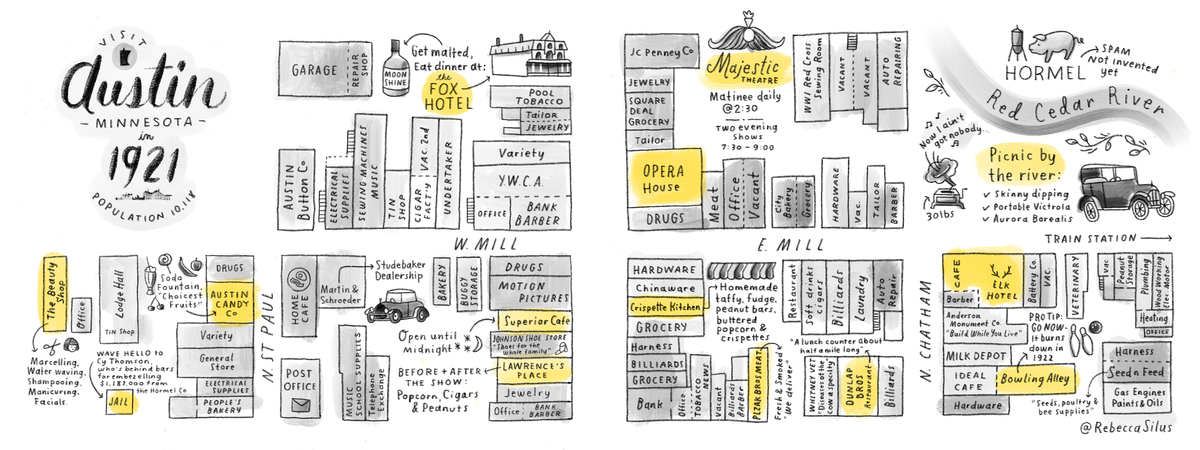 VISIT
Austin
MINNESOTA
in
1921
POPULATION 10,118
GARAGE
REPAIR
SHOP
MOON
SHINE
Get malted,
Eat dinner at:
the
FOX
HOTEL
POOL
TOBACCO
Tailor
JEWELRY
AUSTIN
Button Co
ELECTRICAL
SUPPLIES
SEWING MACHINES
MUSIC
TIN
SHOP
CIGAR
FACT'Y
VAC. 2nd
UNDERTAKER
Variety
Y.W.C.A.
OFFICE
BANK
BARBER
W. MILL
JC Penney Co
JEWELRY
SQUARE
DEAL
GROCERY
Tailor
OPERA
House
DRUGS
Majestic
THEATRE
Matinee daily
@ 2:30
TWO evening
Shows
7:30 - 9:00
WWI Red Cross
Sewing Room
VACANT
VACANT
AUTO
REPAIRING
Meat
Office
Vacant
City
Bakery
Grocery
HARDWARE
Vac.
TAILOR
BARBER
E. MILL
HORMEL
SPAM
Not invented
yet
Red Cedar River
Now I ain't
got nobody...
30lbs
Picnic by
the river:
✓ Skinny dipping
✓ Portable Victrola
✓ Aurora Borealis
TRAIN STATION
The Beauty
Shop
Office
of
Marcelling,
Water waving,
Shampooing,
Manicuring,
Facials.
Lodge Hall
TIN Shop
WAVE HELLO to
Cy Thomson,
who's behind bars
for embezzling
$1,187,000 from
the Hormel Co
JAIL
Soda
Fountain,
"Choicest
Fruits"
DRUGS
AUSTIN
CANDY
Co
Variety
General
Store
ELECTRICAL
SUPPLIES
PEOPLE'S
BAKERY
N. ST PAUL
HOME
CAFE
Martin &
Schroeder
Studebaker
Dealership
POST
OFFICE
MUSIC
SCHOOL SUPPLIES
Telephone
Exchange
BAKERY
BUGGY
STORAGE
Open until
Midnight
BEFORE + AFTER
THE SHOW:
Popcorn, Cigars
& Peanuts
DRUGS
MOTION
PICTURES
Superior Cafe
JOHNSON SHOE STORE
"Shoes for the
whole family"
LAWRENCE'S
PLACE
Jewelry
Office
BANK
BARBER
HARDWARE
Chinaware
Crispette Kitchen
GROCERY
Harness
BILLIARDS
GROCERY
Bank
Homemade
taffy, fudge,
peanut bars,
buttered
popcorn &
crispettes
Office
TOBACCO
NEWS
Vacant
Billiards
Barber
PLZAK BROS. MEAT
Fresh & Smoked
"We deliver"
Restaurant
Soft drinks
cigars
Billiards
Laundry
Auto
Repair
"A lunch counter about
half a mile long"
WHITNEY VET
"Diseases of the
cow a specialty"
DUNLAP
BROS
Restaurant
Billiards
N. CHATHAM
CAFE
ELK
HOTEL
Barber
Anderson
Monument Co.
"Build While You Live"
MILK DEPOT
IDEAL
CAFE
Hardware
Bowling Alley
Battery Co.
VAC.
VETERINARY
PRO TIP:
GO NOW-
It burns
down in
1922
Vac
Peanut
Storage
Plumbing
Wood Working
Elec. Motor
Heating
OFFICE
Harness
Seed n Feed
Gas Engines
Paints & Oils
"Seeds, poultry &
bee supplies"
@RebeccaSilus